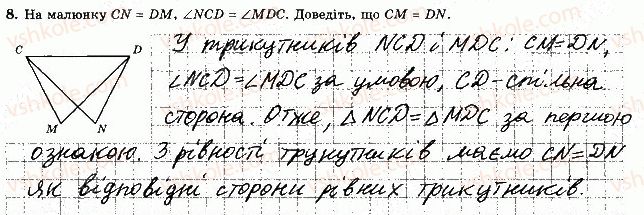 8. На малюнку CN = DM, ∠NCD = ∠MDC. Доведіть, що CM = DN.
C D
M N
У трикутників NCD і MDC: CM=DN,
∠NCD=∠MDC за умовою, CD-спільна
сторона. Отже, △NCD=△MDC за першою
ознакою. З рівності трикутників маємо CN=DN
як відповідні сторони рівних трикутників.